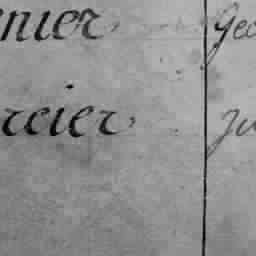 nier Geo
rcier Ju